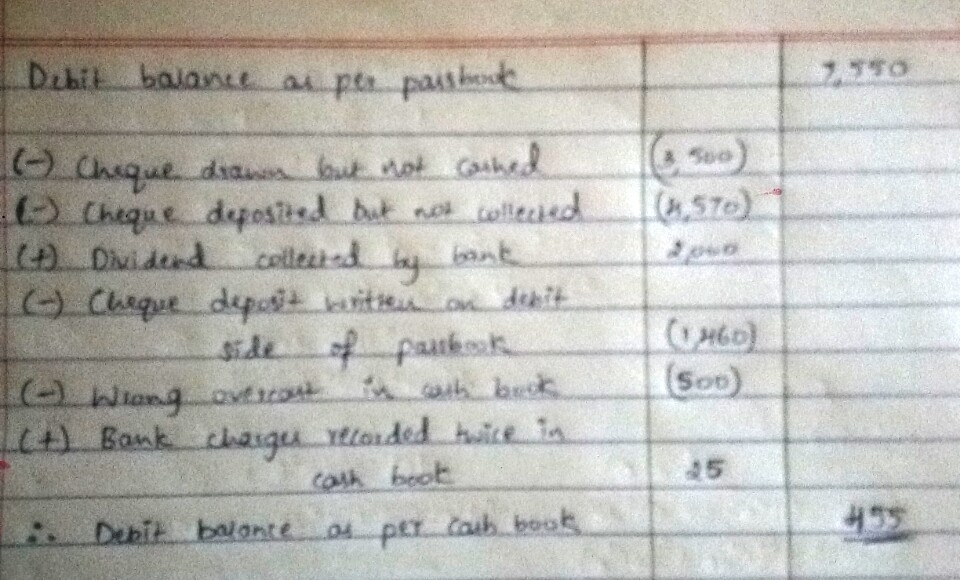 Debit balance as per passbook 7,550
(-) Cheque drawn but not cashed (3,500)
(-) Cheque deposited but not collected (4,570)
(+) Dividend collected by bank 2,000
(-) Cheque deposit written on debit
side of passbook (1,460)
(-) Wrong overcast in cash book (500)
(+) Bank charges recorded twice in
cash book 25
∴ Debit balance as per cash book 455